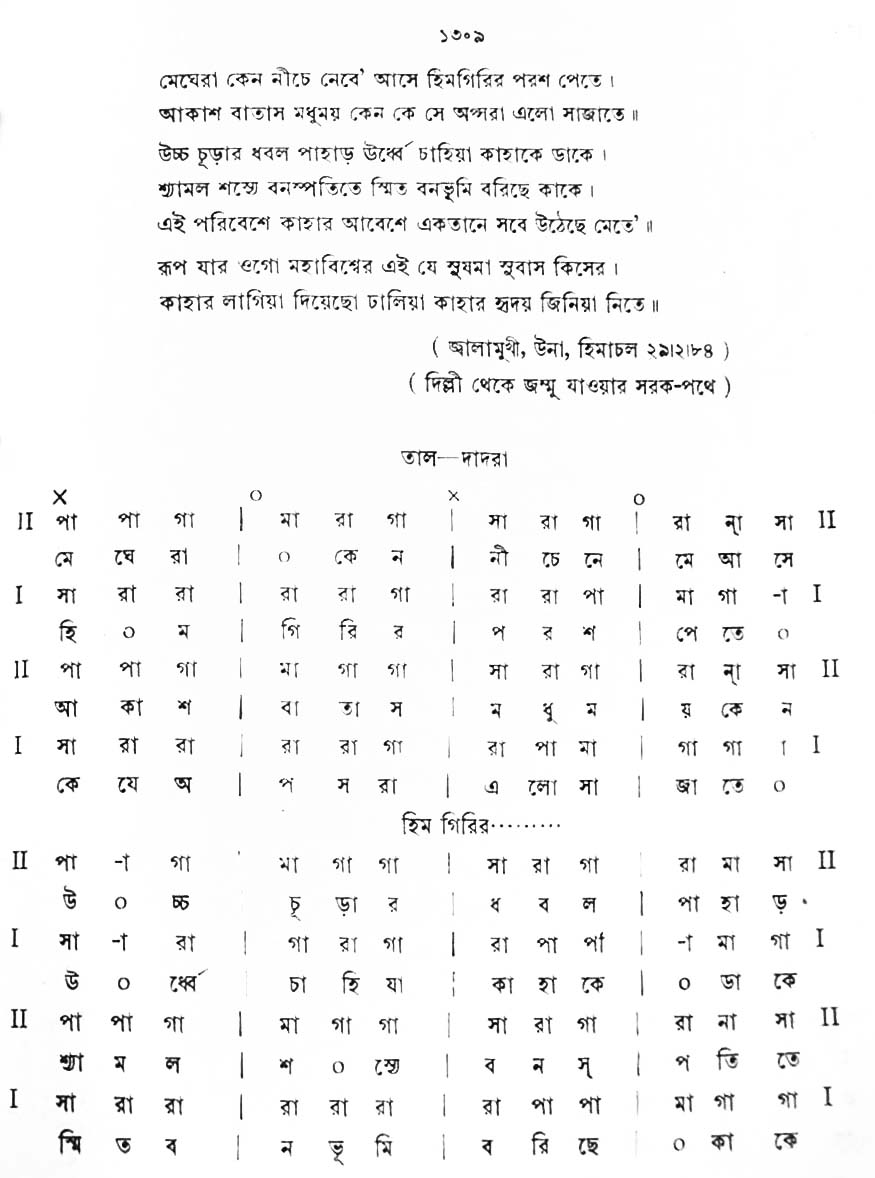 ১৩০৯
মেঘেরা কেন নীচে নেবে' আসে হিমগিরির পরশ পেতে।
আকাশ বাতাস মধুময় কেন কে সে অপ্সরা এলো সাজাতে॥
উচ্চ চূড়ার ধবল পাহাড় ঊর্ধ্বে চাহিয়া কাহাকে ডাকে।
শ্যামল শস্যে বনস্পতিতে স্মিত বনভূমি বরিছে কাকে।
এই পরিবেশে কাহার আবেশে একতানে সবে উঠেছে মেতে'॥
রূপ যার ওগো মহাবিশ্বের এই যে সুষমা সুবাস কিসের।
কাহার লাগিয়া দিয়েছো ঢালিয়া কাহার হৃদয় জিনিয়া নিতে॥
( জ্বালামুখী, উনা, হিমাচল ২৯।২।৮৪ )
( দিল্লী থেকে জম্মু যাওয়ার সরক-পথে )
তাল—দাদরা
× ০ × ০
II পা পা গা | মা রা গা | সা রা গা | রা ন্া সা II
মে ঘে রা | ০ কে ন | নী চে নে | মে আ সে
I সা রা রা | রা রা গা | রা রা পা | মা গা -া I
হি ০ ম | গি রি র | প র শ | পে তে ০
II পা পা গা | মা গা গা | সা রা গা | রা ন্া সা II
আ কা শ | বা তা স | ম ধু ম | য় কে ন
I সা রা রা | রা রা গা | রা পা মা | গা গা া I
কে যে অ | প স রা | এ লো সা | জা তে ০
হিম গিরির·········
II পা -া গা ' মা গা গা | সা রা গা | রা মা সা II
উ ০ চ্চ চূ ড়া র | ধ ব ল | পা হা ড় ·
I সা -া রা | গা রা গা | রা পা পা | -া মা গা I
উ ০ র্ধ্বে চা হি যা ¦ কা হা কে | ০ ডা কে
II পা পা গা | মা গা গা | সা রা গা | রা না সা II
শ্যা ম ল | শ ০ স্যে | ব ন স্ | প তি তে
I সা রা রা | রা রা রা | রা পা পা | মা গা গা I
স্মি ত ব | ন ভূ মি | ব রি ছে | ০ কা কে